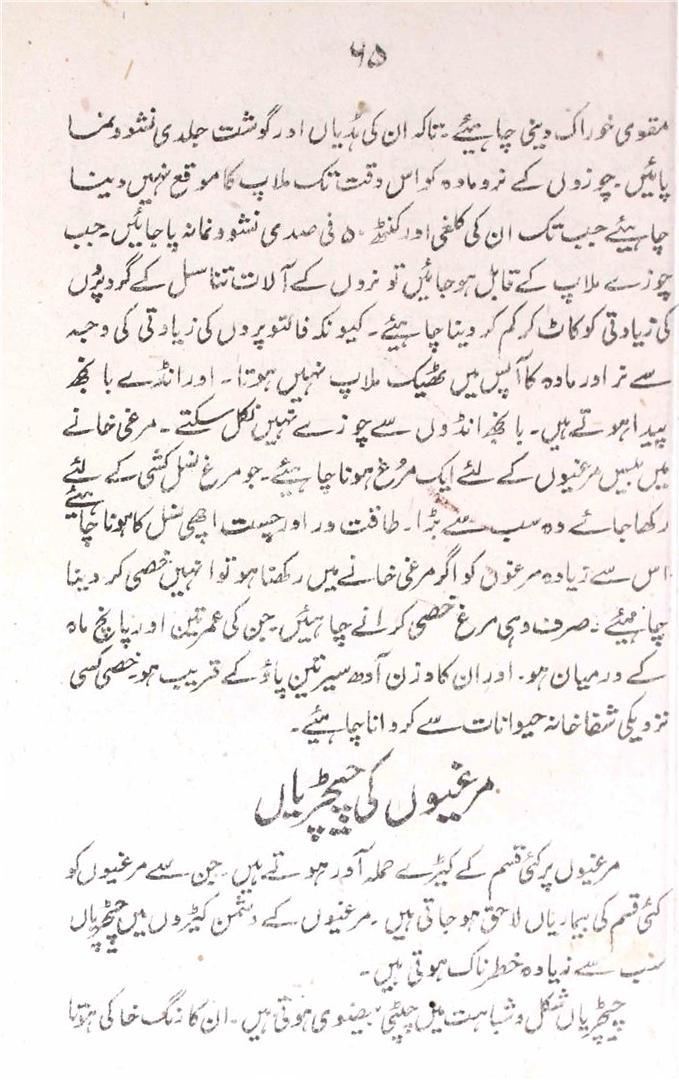 ۶۵
مقوی خوراک دینی چاہیئے۔ تاکہ ان کی ہڈیاں اور گوشت جلدی نشوونما
پائیں۔ چوزوں کے نر و مادہ کو اس وقت تک ملاپ کا موقع نہیں دینا
چاہیئے جب تک ان کی کلغی اور کنٹھ ۵۰ فی صدی نشوونما نہ پا جائیں۔ جب
چوزے ملاپ کے قابل ہو جائیں تو نروں کے آلات تناسل کے گرد پروں
کی زیادتی کو کاٹ کر کم کر دینا چاہیئے۔ کیونکہ فالتو پروں کی زیادتی کی وجہ
سے نر اور مادہ کا آپس میں ٹھیک ملاپ نہیں ہوتا۔ اور انڈے بانجھ
پیدا ہوتے ہیں۔ بانجھ انڈوں سے چوزے نہیں نکل سکتے۔ مرغی خانے
میں بیس مرغیوں کے لئے ایک مرغ ہونا چاہیئے۔ جو مرغ نسل کشی کے لئے
رکھا جائے وہ سب سے بڑا۔ طاقت ور اور چست اچھی نسل کا ہونا چاہیئے
اس سے زیادہ مرغوں کو اگر مرغی خانے میں رکھنا ہو تو انہیں خصی کر دینا
چاہیئے۔ صرف وہی مرغ خصی کرانے چاہئیں۔ جن کی عمر تین اور پانچ ماہ
کے درمیان ہو۔ اور ان کا وزن آدھ سیر تین پاؤ کے قریب ہو۔ خصی کسی
نزدیکی شفاخانہ حیوانات سے کروانا چاہیئے۔
مرغیوں کی چیچڑیاں
مرغیوں پر کئی قسم کے کیڑے حملہ آور ہوتے ہیں۔ جن سے مرغیوں کو
کئی قسم کی بیماریاں لاحق ہو جاتی ہیں۔ مرغیوں کے دشمن کیڑوں میں چیچڑیاں
سب سے زیادہ خطرناک ہوتی ہیں۔
چیچڑیاں شکل و شباہت میں چپٹی بیضوی ہوتی ہیں۔ ان کا رنگ خاکی ہوتا